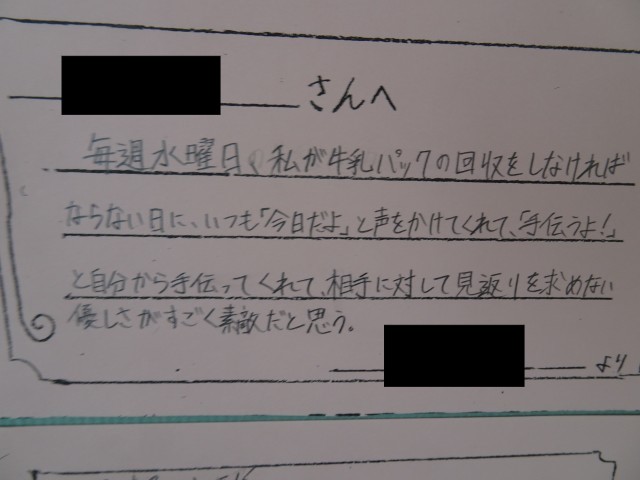 さんへ
毎週水曜日、私が牛乳パックの回収をしなければ
ならない日に、いつも「今日だよ」と声をかけてくれて、「手伝うよ！」
と自分から手伝ってくれて、相手に対して見返りを求めない
優しさがすごく素敵だと思う。
より